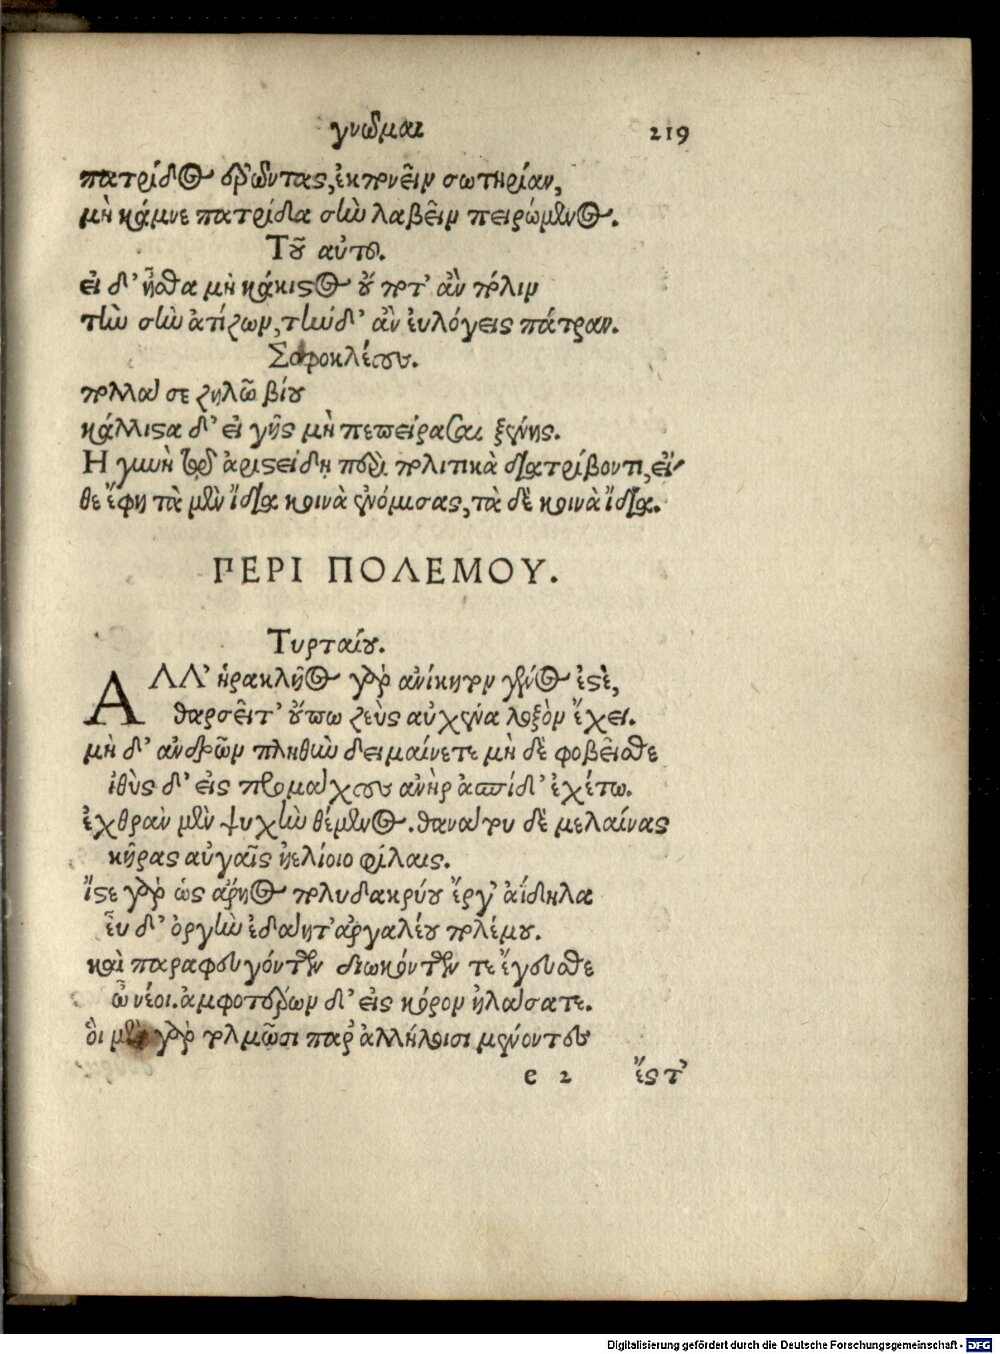 γνῶμαι 219
πατρίδος ὁρῶντας, ἐκπονεῖν σωτηρίαν,
μὴ κάμνε πατρίδα σὴν λαβεῖν πειρώμενος.
Τοῦ αὐτοῦ.
εἰ δ' ἦσθα μὴ κάκιστος οὔποτ' ἂν πόλιν
τὴν σὴν ἀτίζων, τήνδ' ἂν εὐλόγεις πάτραν.
Σοφοκλέους.
πολλά σε ζηλῶ βίου
κάλλιστα δ' εἰ γῆς μὴ πεπείρασαι ξένης.
Η γυνὴ τοῦ ἀριστείδη περὶ πολιτικὰ διατρίβοντι, εἴ-
θε ἔφη τὰ μὲν ἴδια κοινὰ ἐνόμισας, τὰ δὲ κοινὰ ἴδια.
ΠΕΡΙ ΠΟΛΕΜΟΥ.
Τυρταίου.
ΑΛΛ' ἡρακλῆος γὰρ ἀνίκητον γένος ἐστὲ,
θαρσεῖτ' οὔπω ζεὺς αὐχένα λοξὸν ἔχει.
μὴ δ' ἀνδρῶν πληθὺν δειμαίνετε μὴ δὲ φοβεῖσθε
ἰθὺς δ' εἰς προμάχους ἀνὴρ ἀσπίδ' ἐχέτω.
ἐχθρὰν μὲν ψυχὴν θέμενος. θανάτου δὲ μελαίνας
κῆρας αὐγαῖς ἠελίοιο φίλαις.
ἴστε γὰρ ὡς ἄρηος πολυδακρύου ἔργ' ἀΐδηλα
εὖ δ' ὀργὴν ἐδάητ' ἀργαλέου πολέμου.
καὶ παραφευγόντων διωκόντων τε ἔγευσθε
ὦ νέοι. ἀμφοτέρων δ' εἰς κόρον ἠλάσατε.
οἳ μὲν γὰρ τολμῶσι παρ' ἀλλήλοισι μένοντες
e 2 ἔς τ'
Digitalisierung gefördert durch die Deutsche Forschungsgemeinschaft - DFG